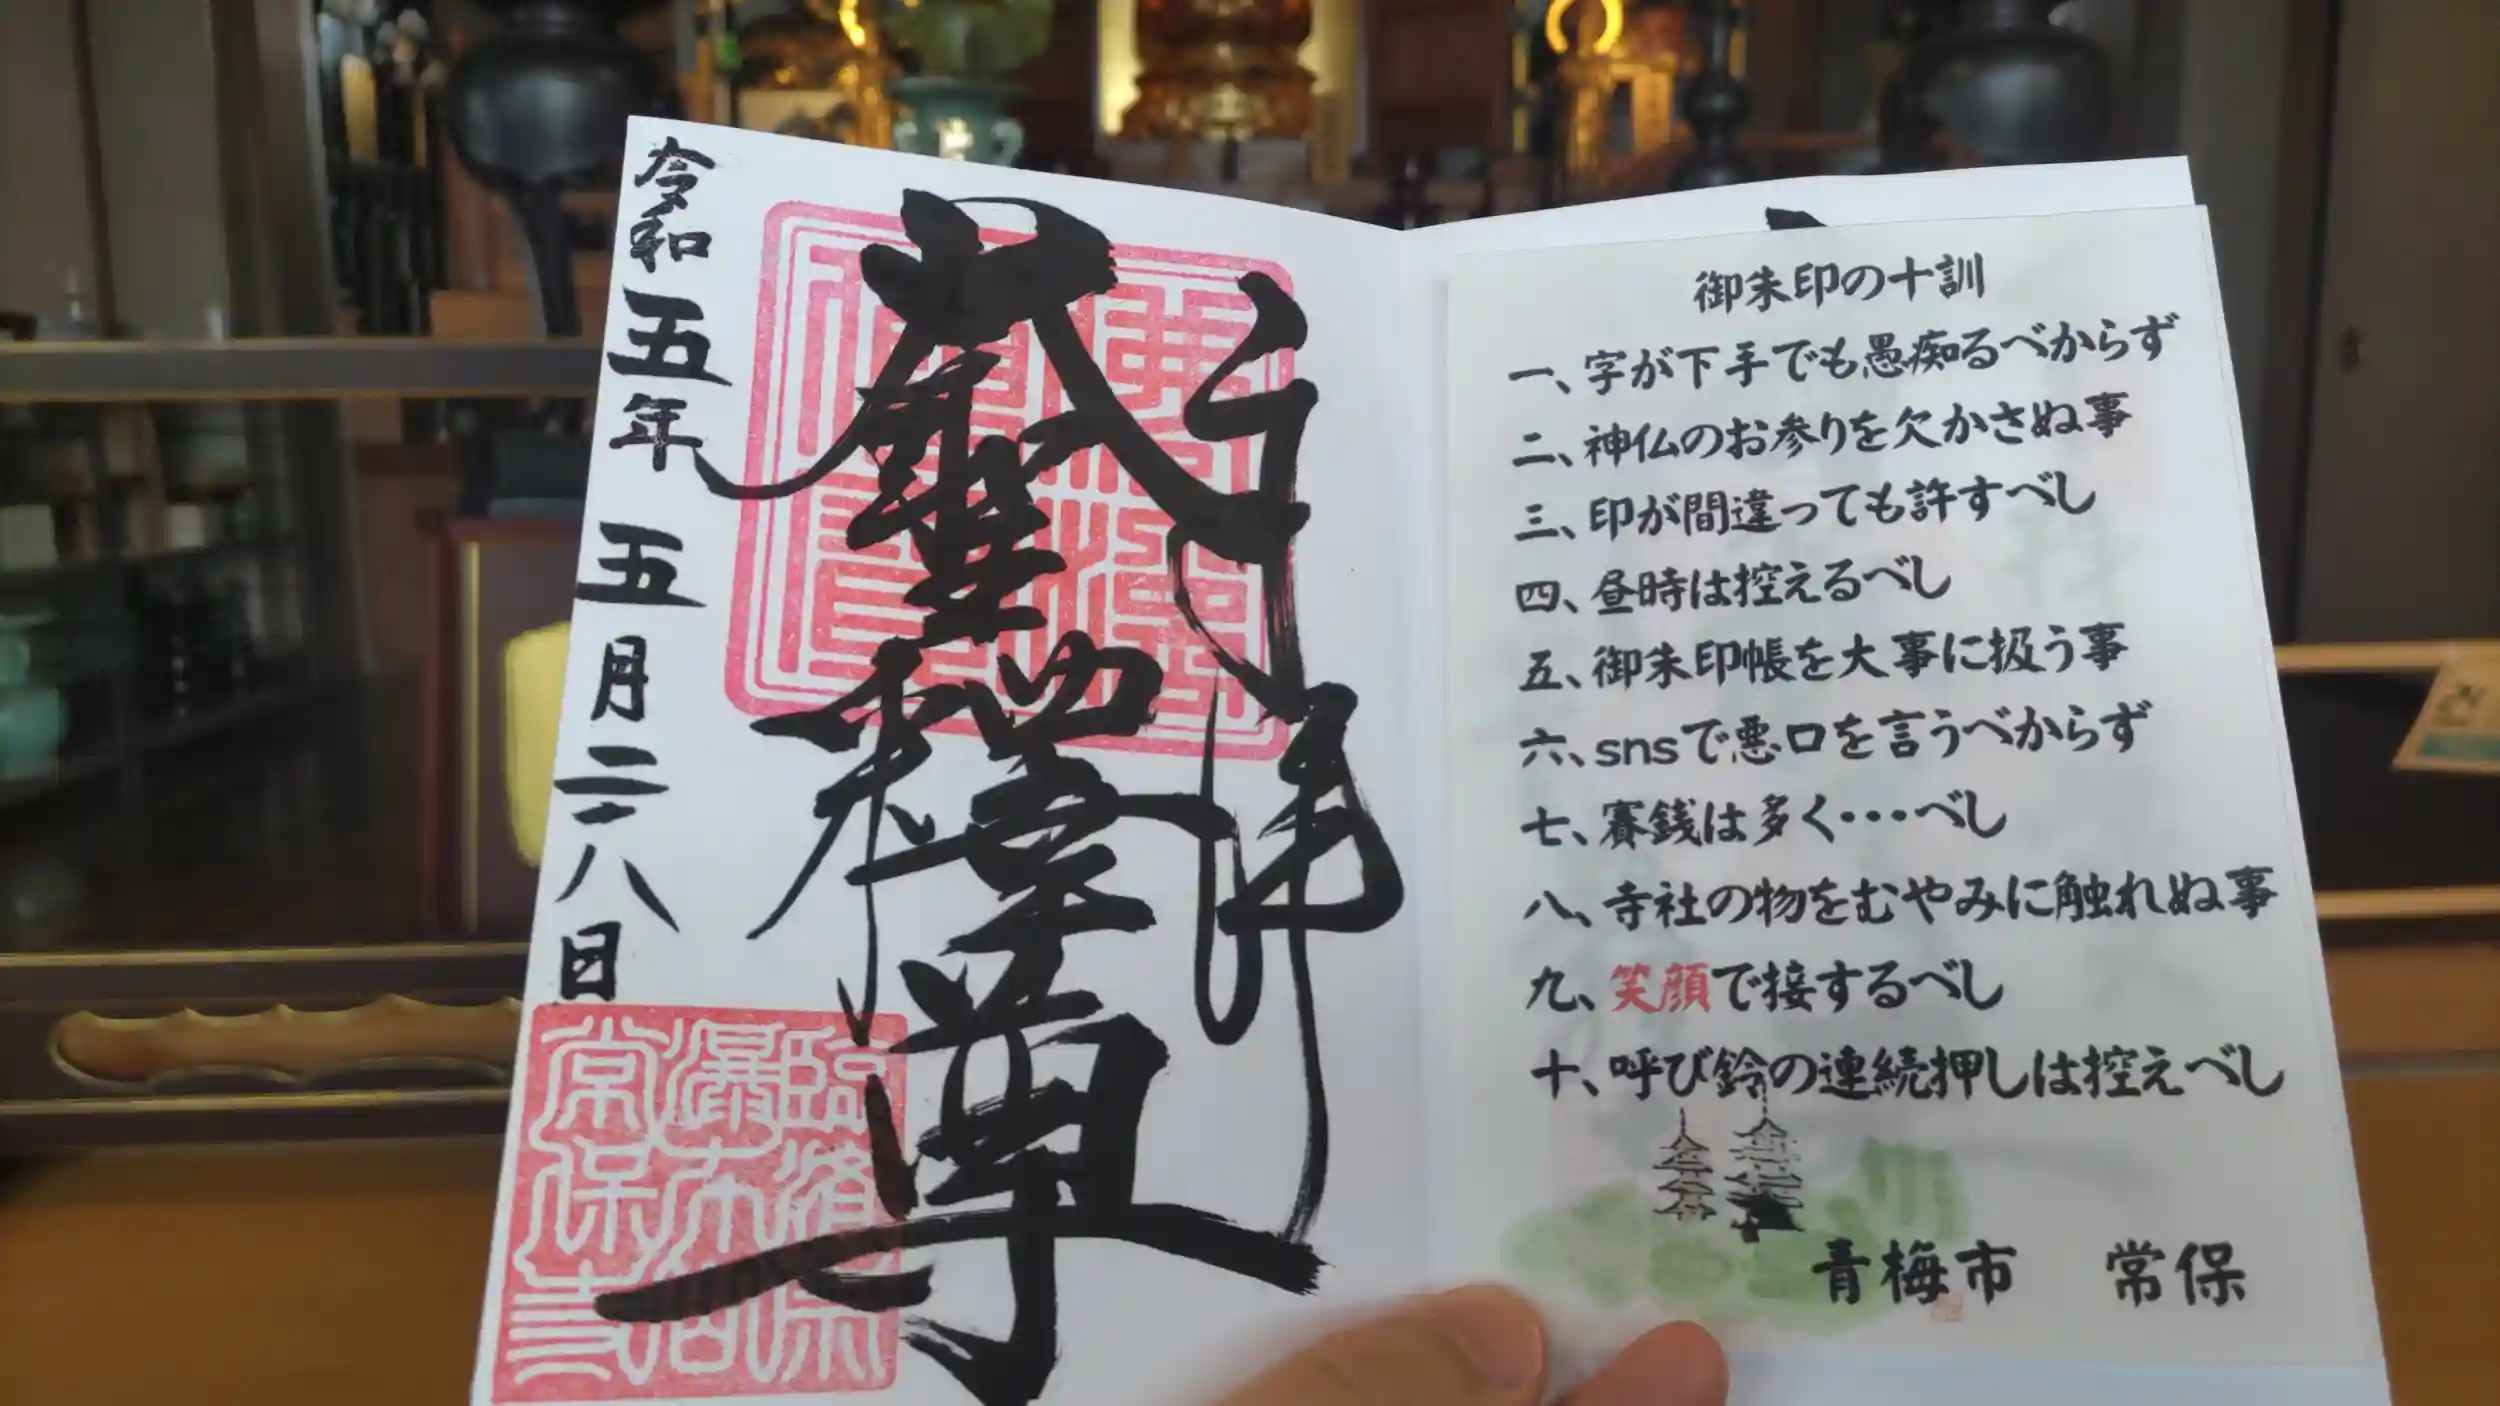 奉拝
釋迦牟尼尊
令和五年五月二八日
臨済
常保寺
御朱印の十訓
一、字が下手でも愚痴るべからず
二、神仏のお参りを欠かさぬ事
三、印が間違っても許すべし
四、昼時は控えるべし
五、御朱印帳を大事に扱う事
六、snsで悪口を言うべからず
七、賽銭は多く・・・べし
八、寺社の物をむやみに触れぬ事
九、笑顔で接するべし
十、呼び鈴の連続押しは控えべし
青梅市 常保